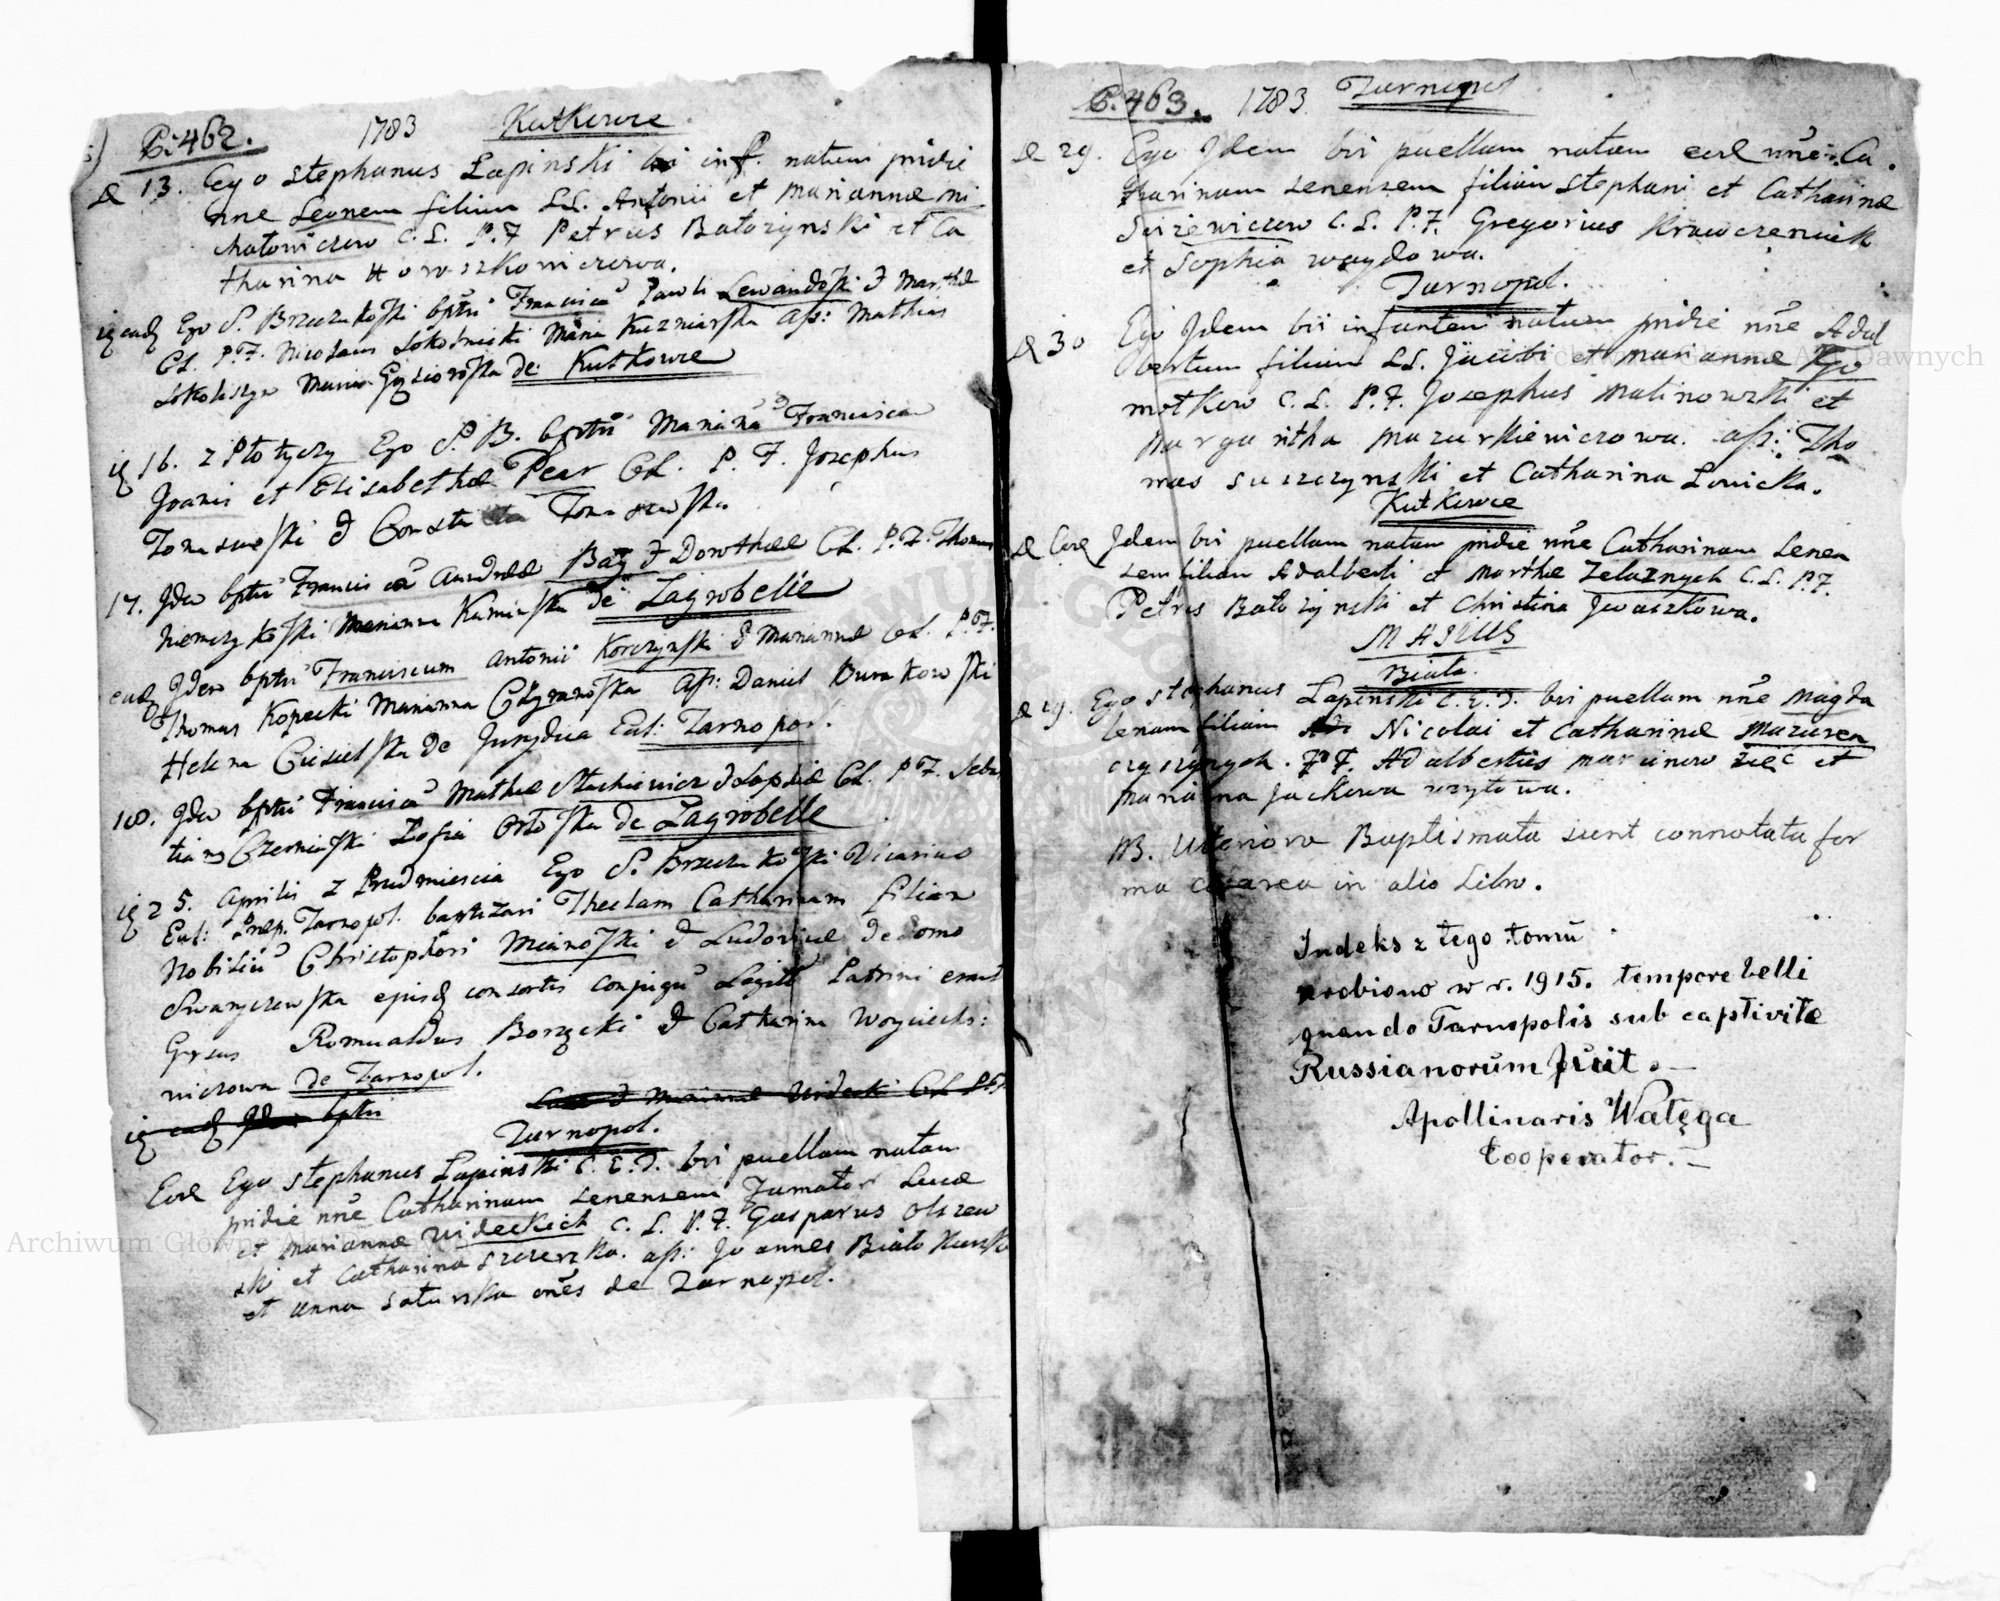 P. 462. 1783 Kutkowce
d 13. Ego Stephanus Lapinski bi inf. natum pridie
nne Leonem filium LL. Antonii et Mariannæ mi
chatowiczow C. L. P. F Petrus Batozynski et Ca
tharina Horoszkowiczowa.
ig ead Ego S. Brzeznkoski bptu Francisca Pawli Lewandoski & Martha
CL. P. F. Nicolaus Sokolnicki Maria Kuzniarska Ass: Mathias
de Kutkowce
ig 16. z Płotyczy Ego S. B. bptu Mariana Francisca
Joanis et Elisabethæ Pear CL. P. F. Josephus
Tomaszewski & Tomaszewska
17. Idem bptu Francisca Andreæ Bay & Dorotheæ CL. P. F. Thomas
Niemczykoski Marianna Kaminska de Zagrobelle
ead Idem bptu Franciscum Antonii Korczynski & Mariannæ CL. P. F.
Thomas Kopecki Marianna Chrzanoska Ass: Daniel Burakowski
Helena Cieselska de Jurydica Eccl: Tarnopol.
18. Idem bptu Francisca Mathæ Stachiewicz & Sophiæ CL. P. F. Seba
tians Czerniaski Zofia Ortoska de Zagrobelle
ig 25. Aprilis z Prudmiescia Ego S. Brzeznkoski Vicarius
Eccl: Præp. Tarnopol. baptizavi Theclam Catharinam filiam
Nobiliu Christophori Mianoski & Ludovicæ de domo
Swanyczewska ejusq consortis conjugu Legitt Patrini erant
Gnrsus Romualdus Borzecki & Catharina Woyciecho:
wiczowa de Tarnopol.
ig ead Idem bptu
Lucæ & Mariannæ Videcki CL P. F.
Tarnopol.
Eod Ego Stephanus Lapinski C. E. T. bi puellam natam
pridie nne Catharinam senensem Lucæ
et Mariannæ Videckich C. L. P. F. Gasparus Olszew
ski et Catharina Szczerzka. ass: Joannes Biato
et Anna Soturska oñes de Tarnopol.
P. 463. 1783 Tarnopol
d 29. Ego Idem bi puellam natam eod nñe Ca
tharinam senensem filiam Stephani et Catharinæ
Swizewiczow C. L. P. F. Gregorius Krawczeniuk
et Sophia waydowa.
Tarnopol.
d 30 Ego Idem bi infantem natum pridie nñe Adal
bertum filium LL. Jacobi et Mariannæ Kgo
motkow C. L. P. F. Josephus Malinowski et
Margaritha Mazurkiewiczowa. ass: Tho
mas Suszczynski et Catharina Lewicka.
Kutkowce
d Eod Idem bi puellam natam pridie nñe Catharinam Senen
sem filiam Adalberti et Marthæ Zelaznych C. L. P. F.
Petrus Batozynski et Christina Iwaszkowa.
MAJUS
Biała
d 19. Ego Stephanus Lapinski C. E. T. bi puellam nñe Magda
lenam filiam Nicolai et Catharinæ Mazuren
czyszynych. P. F. Adalbertus marcinow zięć et
Marianna Jackowa wzytowa.
NB. Ulteriora Baptismata sunt connotata for
ma cæsarea in alio Libro.
Indeks z tego tomu
zrobiono w r. 1915. tempore belli
quando Tarnopolis sub captivite
Russianorum fuit. —
Apollinaris Wałęga
Cooperator. —
Archiwum Główne Akt Dawnych
Archiwum Główne Akt Dawnych